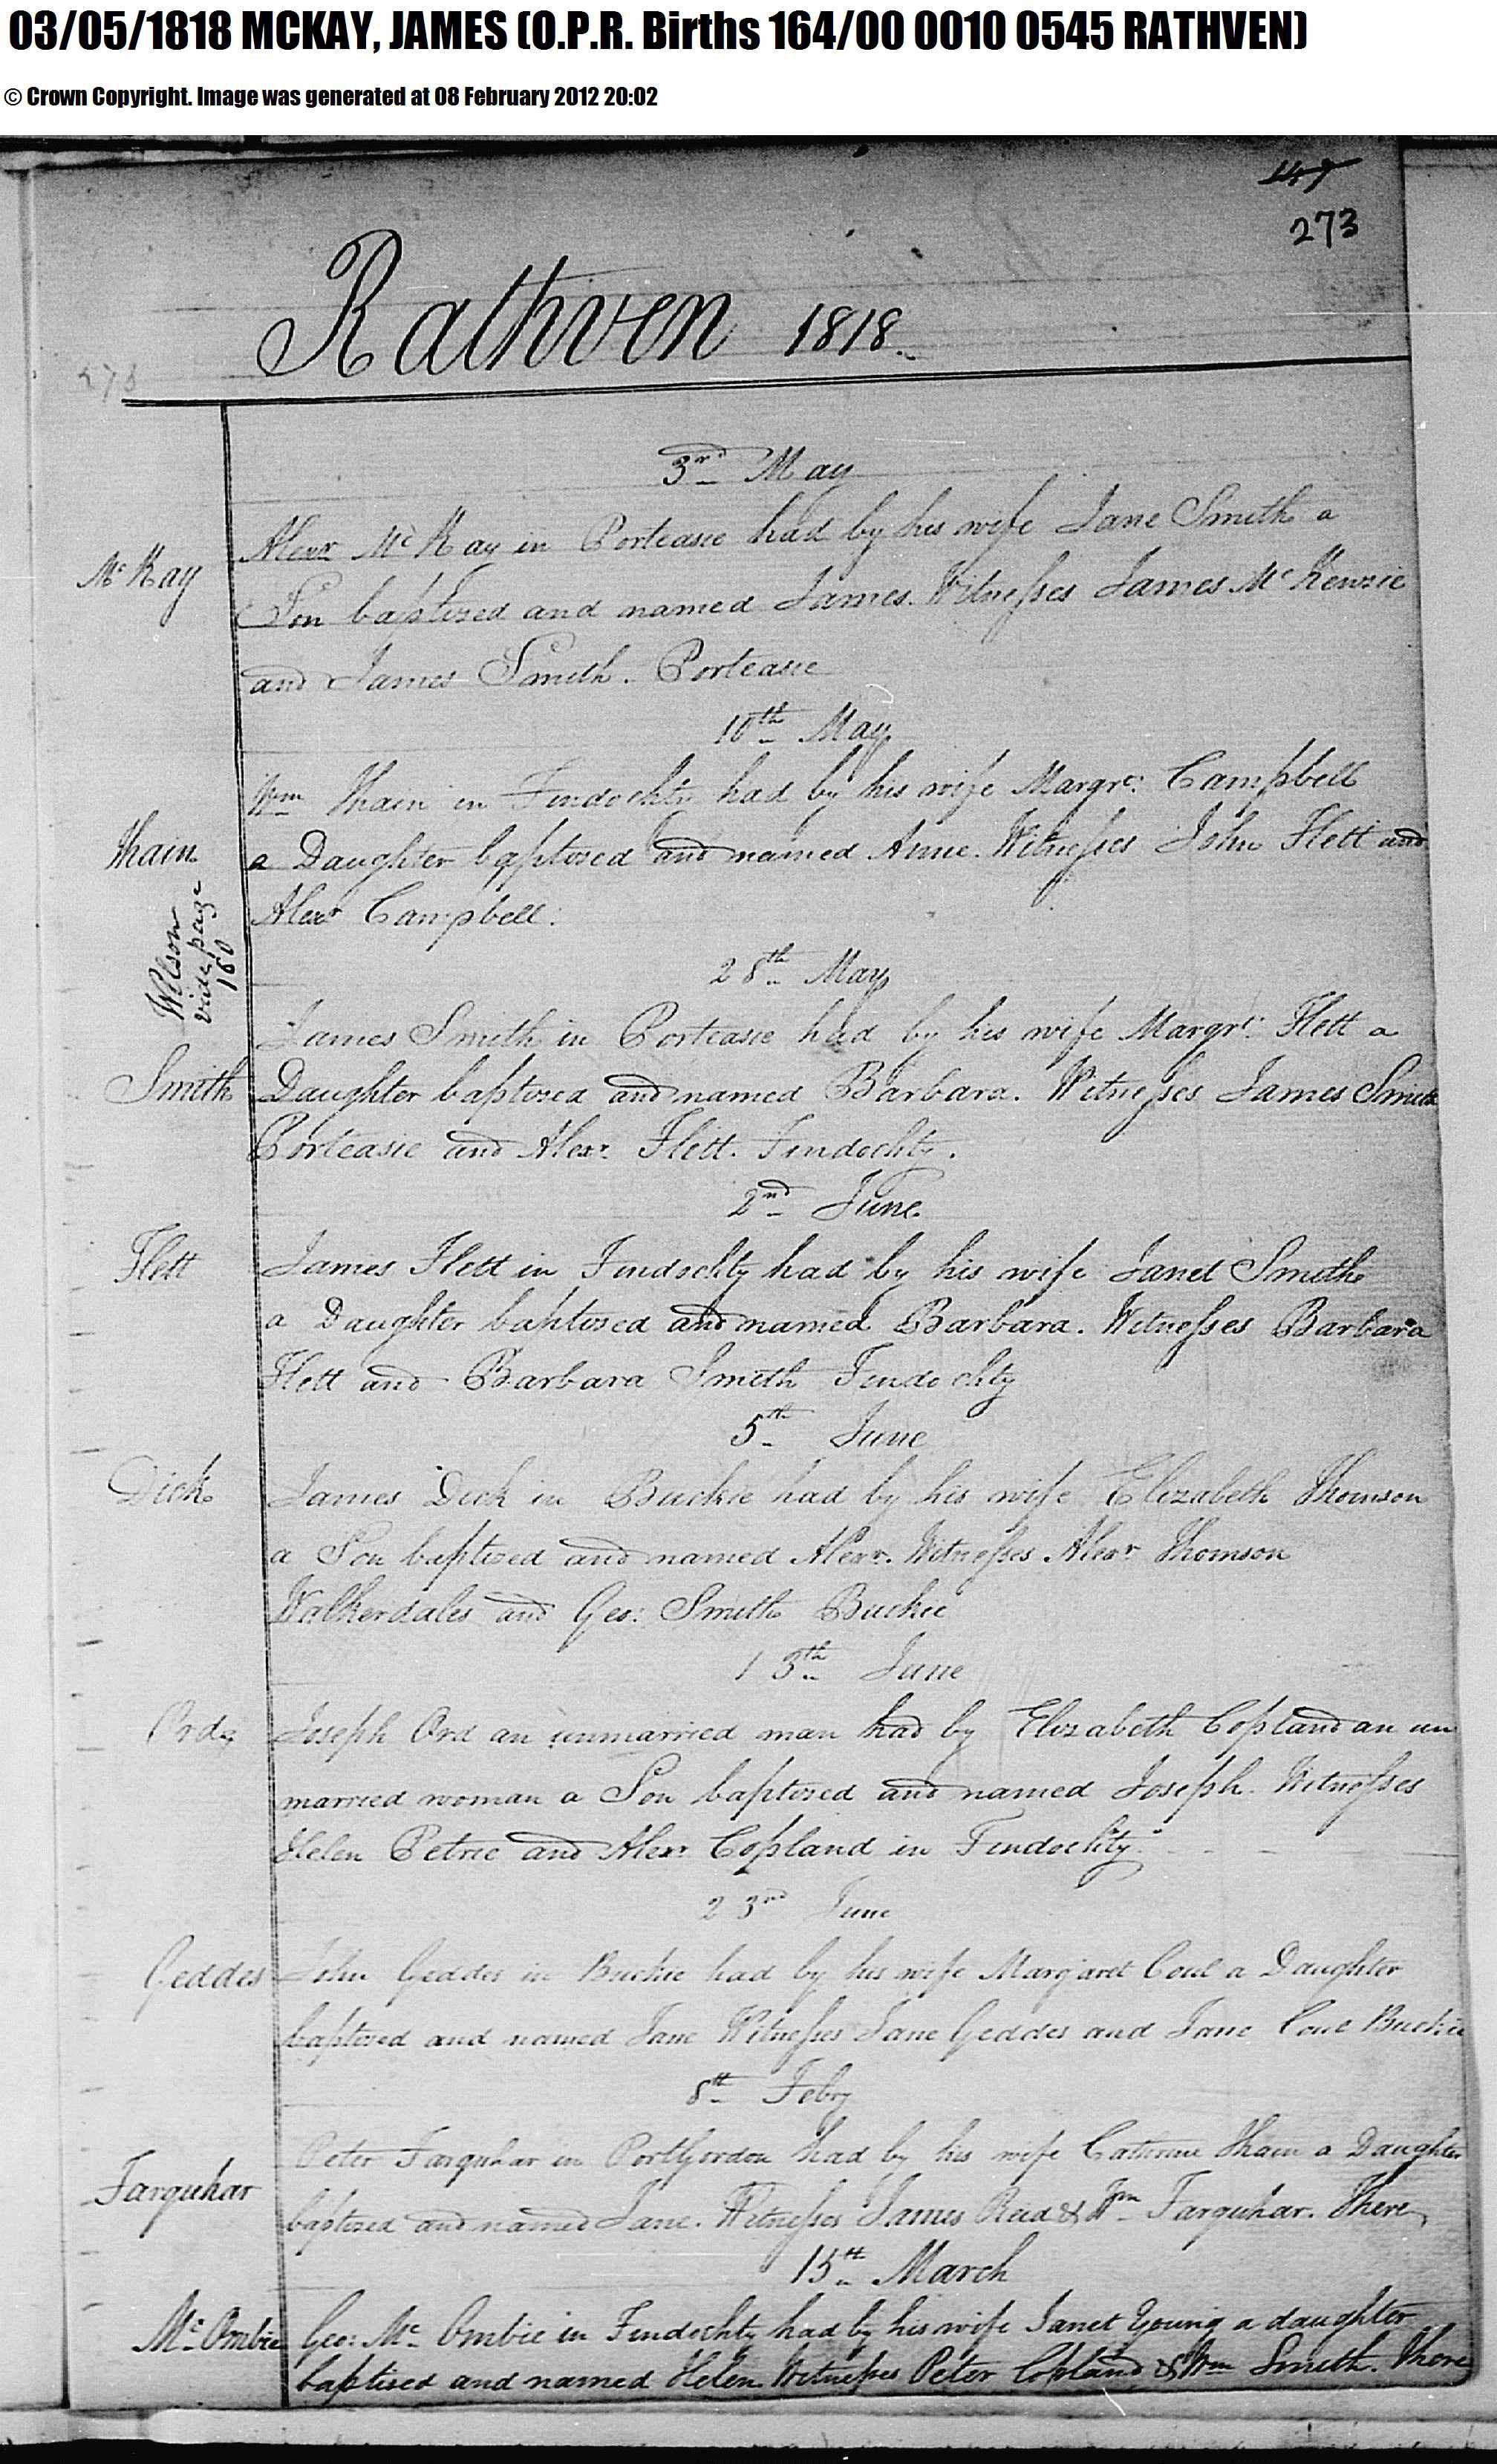 03/05/1818 MCKAY, JAMES (O.P.R. Births 164/00 0010 0545 RATHVEN)
© Crown Copyright. Image was generated at 08 February 2012 20:02
147
273
Rathven 1818.
273
3rd May
McKay
Alexr McKay in Porteasie had by his wife Jane Smith a
Son baptized and named James. Witnesses James McKenzie
and James Smith. Porteasie
10th May
Thain
Wm Thain in Findochty had by his wife Margrt: Campbell
a Daughter baptized and named Anne. Witnesses John Flett and
Alexr Campbell.
Wilson
vide page
160
28th May
Smith
James Smith in Porteasie had by his wife Margrt: Flett a
Daughter baptized and named Barbara. Witnesses James Smith
Porteasie and Alexr. Flett. Findochty.
2nd June.
Flett
James Flett in Findochty had by his wife Janet Smith
a Daughter baptized and named Barbara. Witnesses Barbara
Flett and Barbara Smith Findochty
5th June
Dick
James Dick in Buckie had by his wife Elizabeth Thomson
a Son baptized and named Alexr. Witnesses Alexr Thomson
Walkerdales and Geo: Smith Buckie
13th June
Ord
Joseph Ord an unmarried man had by Elizabeth Copland an un
married woman a Son baptized and named Joseph. Witnesses
Helen Petrie and Alexr Copland in Findochty.
23rd June
Geddes
John Geddes in Buckie had by his wife Margaret Coul a Daughter
baptized and named Jane Witnesses Jane Geddes and Jane Coul Buckie
8th Febry
Farquhar
Peter Farquhar in Portgordon had by his wife Catherine Thain a Daughter
baptized and named Jane. Witnesses James Reid & Wm Farquhar. There
15th March
McOmbie
Geo: McOmbie in Findochty had by his wife Janet Young a daughter
baptized and named Helen Witnesses Peter Copland & Wm Smith. There